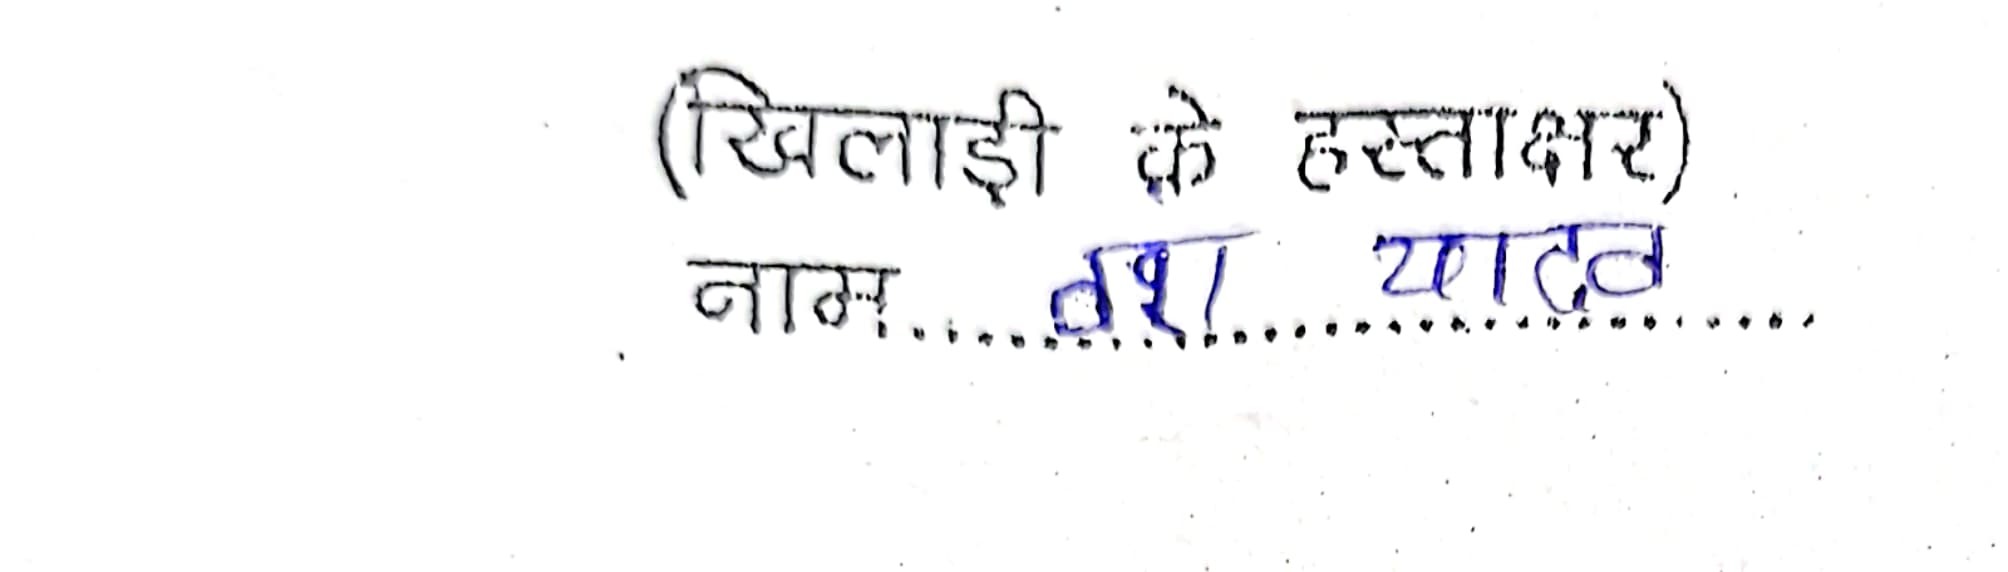 (खिलाड़ी के हस्ताक्षर)
नाम.....वंश यादव.....